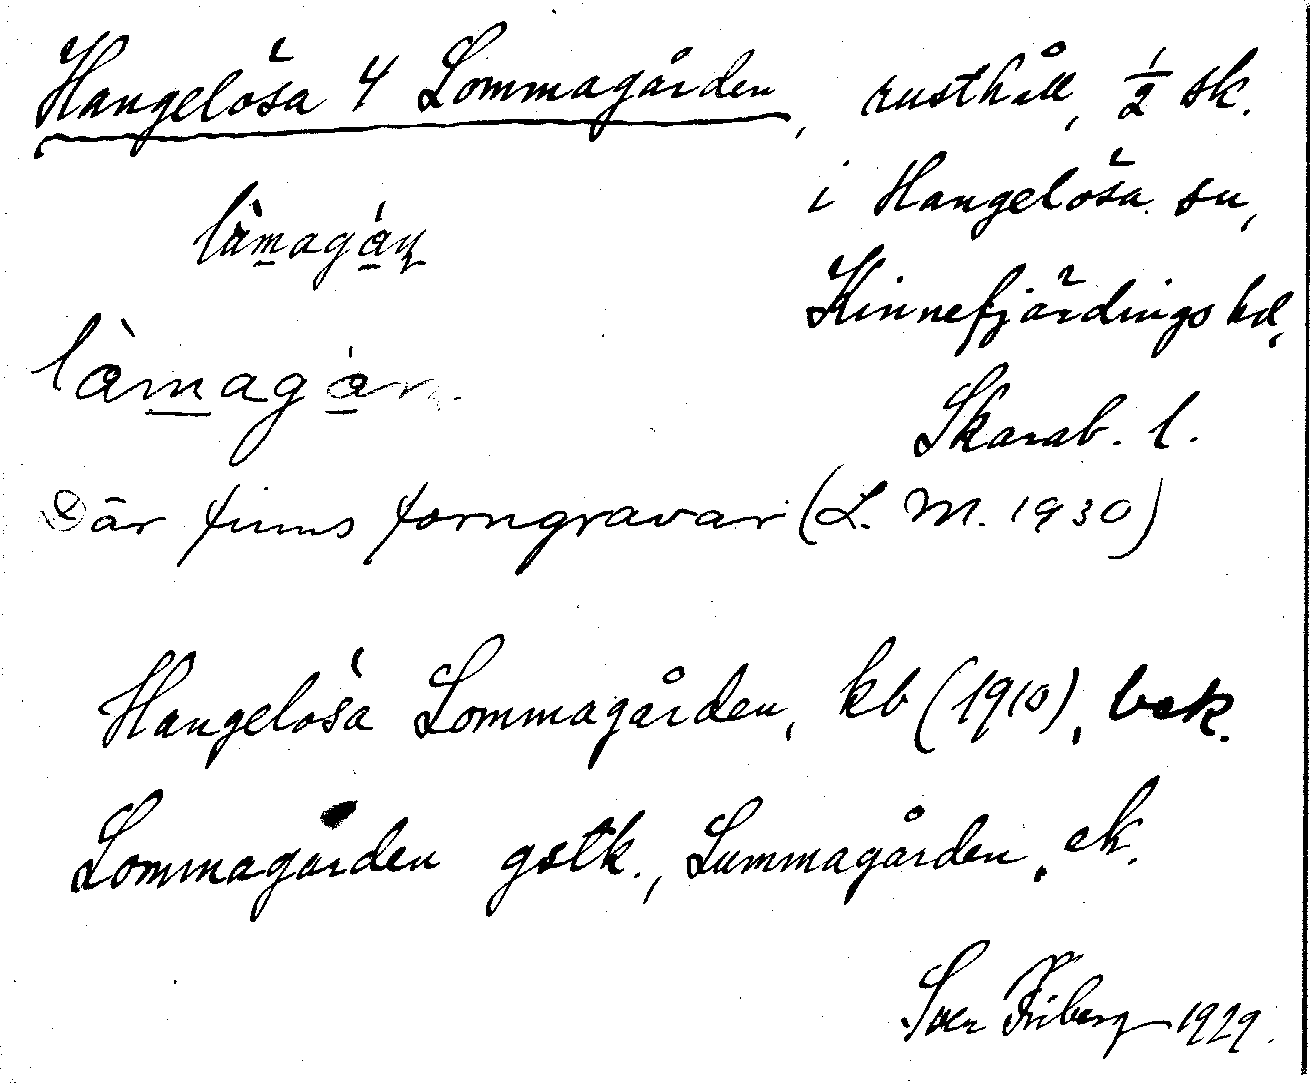 Hangelösa 4 Lommagården, rusthåll, 1/2 sk.
i Hangelösa sn,
làmagán
Kinnefjärdings hd,
låmagår
Skarab. l.
Där finns forngravar (L. M. 1930)
Hangelösa Lommagården, kb (1910), bek.
Lommagården gstk., Lummagården, ek.
Sven Friberg 1929.